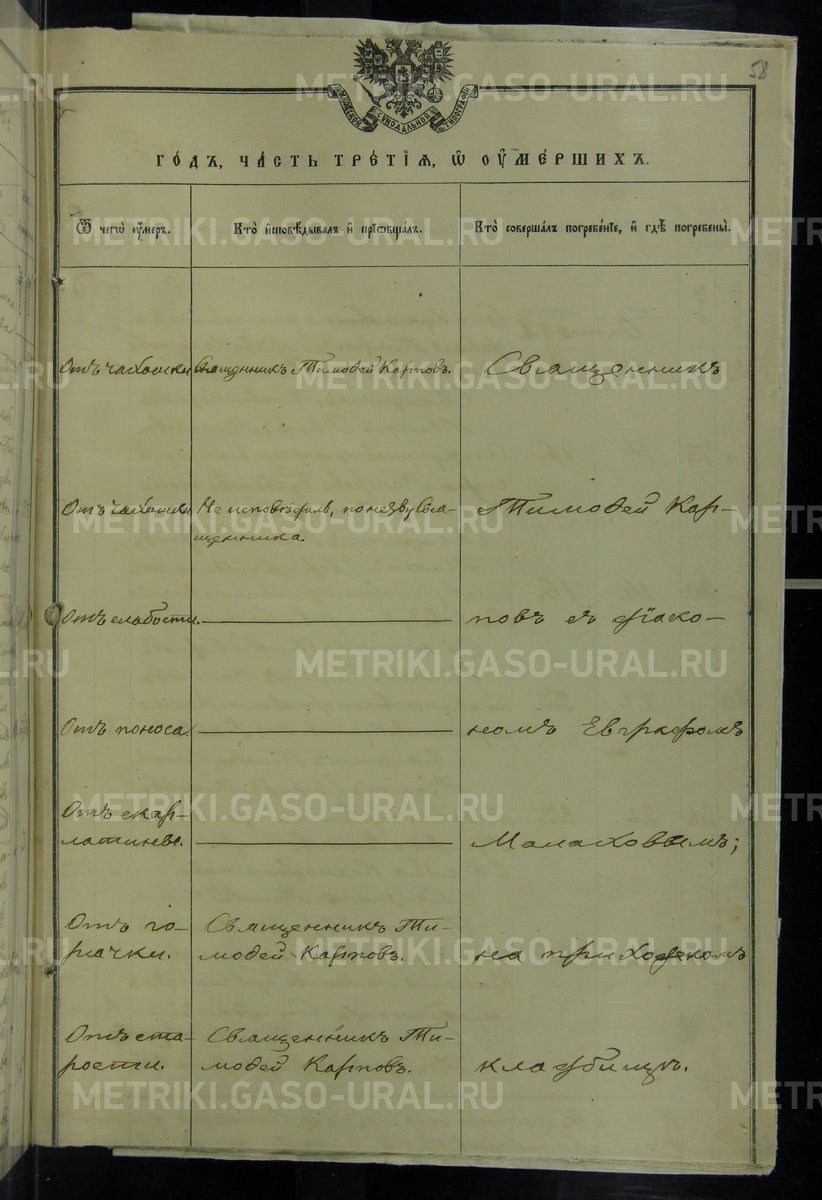 58
МОСКОВСКОЙ СѴНОДАЛЬНОЙ ТИПОГРАФІИ
ГО́ДЪ, ЧА́СТЬ ТРЕ́ТІѦ, Ѡ҆ ОУ҆МЕ́РШИХЪ.
Ѿ чегѡ̀ оу҆́меръ.
Кто̀ и҆сповѣ́дывалъ и҆ прїѡбща́лъ.
Кто̀ соверша́лъ погребе́нїе, и҆ гдѣ̀ погребены̀.
Отъ чахотки
Священникъ Тимоѳей Карповъ.
Священникъ
Отъ чахотки
Не исповѣдалъ, по незву Свя-
щенника.
Тимоѳей Кар-
Отъ слабости.
повъ съ діако-
Отъ поноса
номъ Евграфомъ
Отъ скар-
латины.
Малаховымъ;
Отъ го-
рячки.
Священникъ Ти-
моѳей Карповъ.
на приходскомъ
Отъ ста-
рости.
Священникъ Ти-
моѳей Карповъ.
кладбищѣ.
METRIKI.GASO-URAL.RU